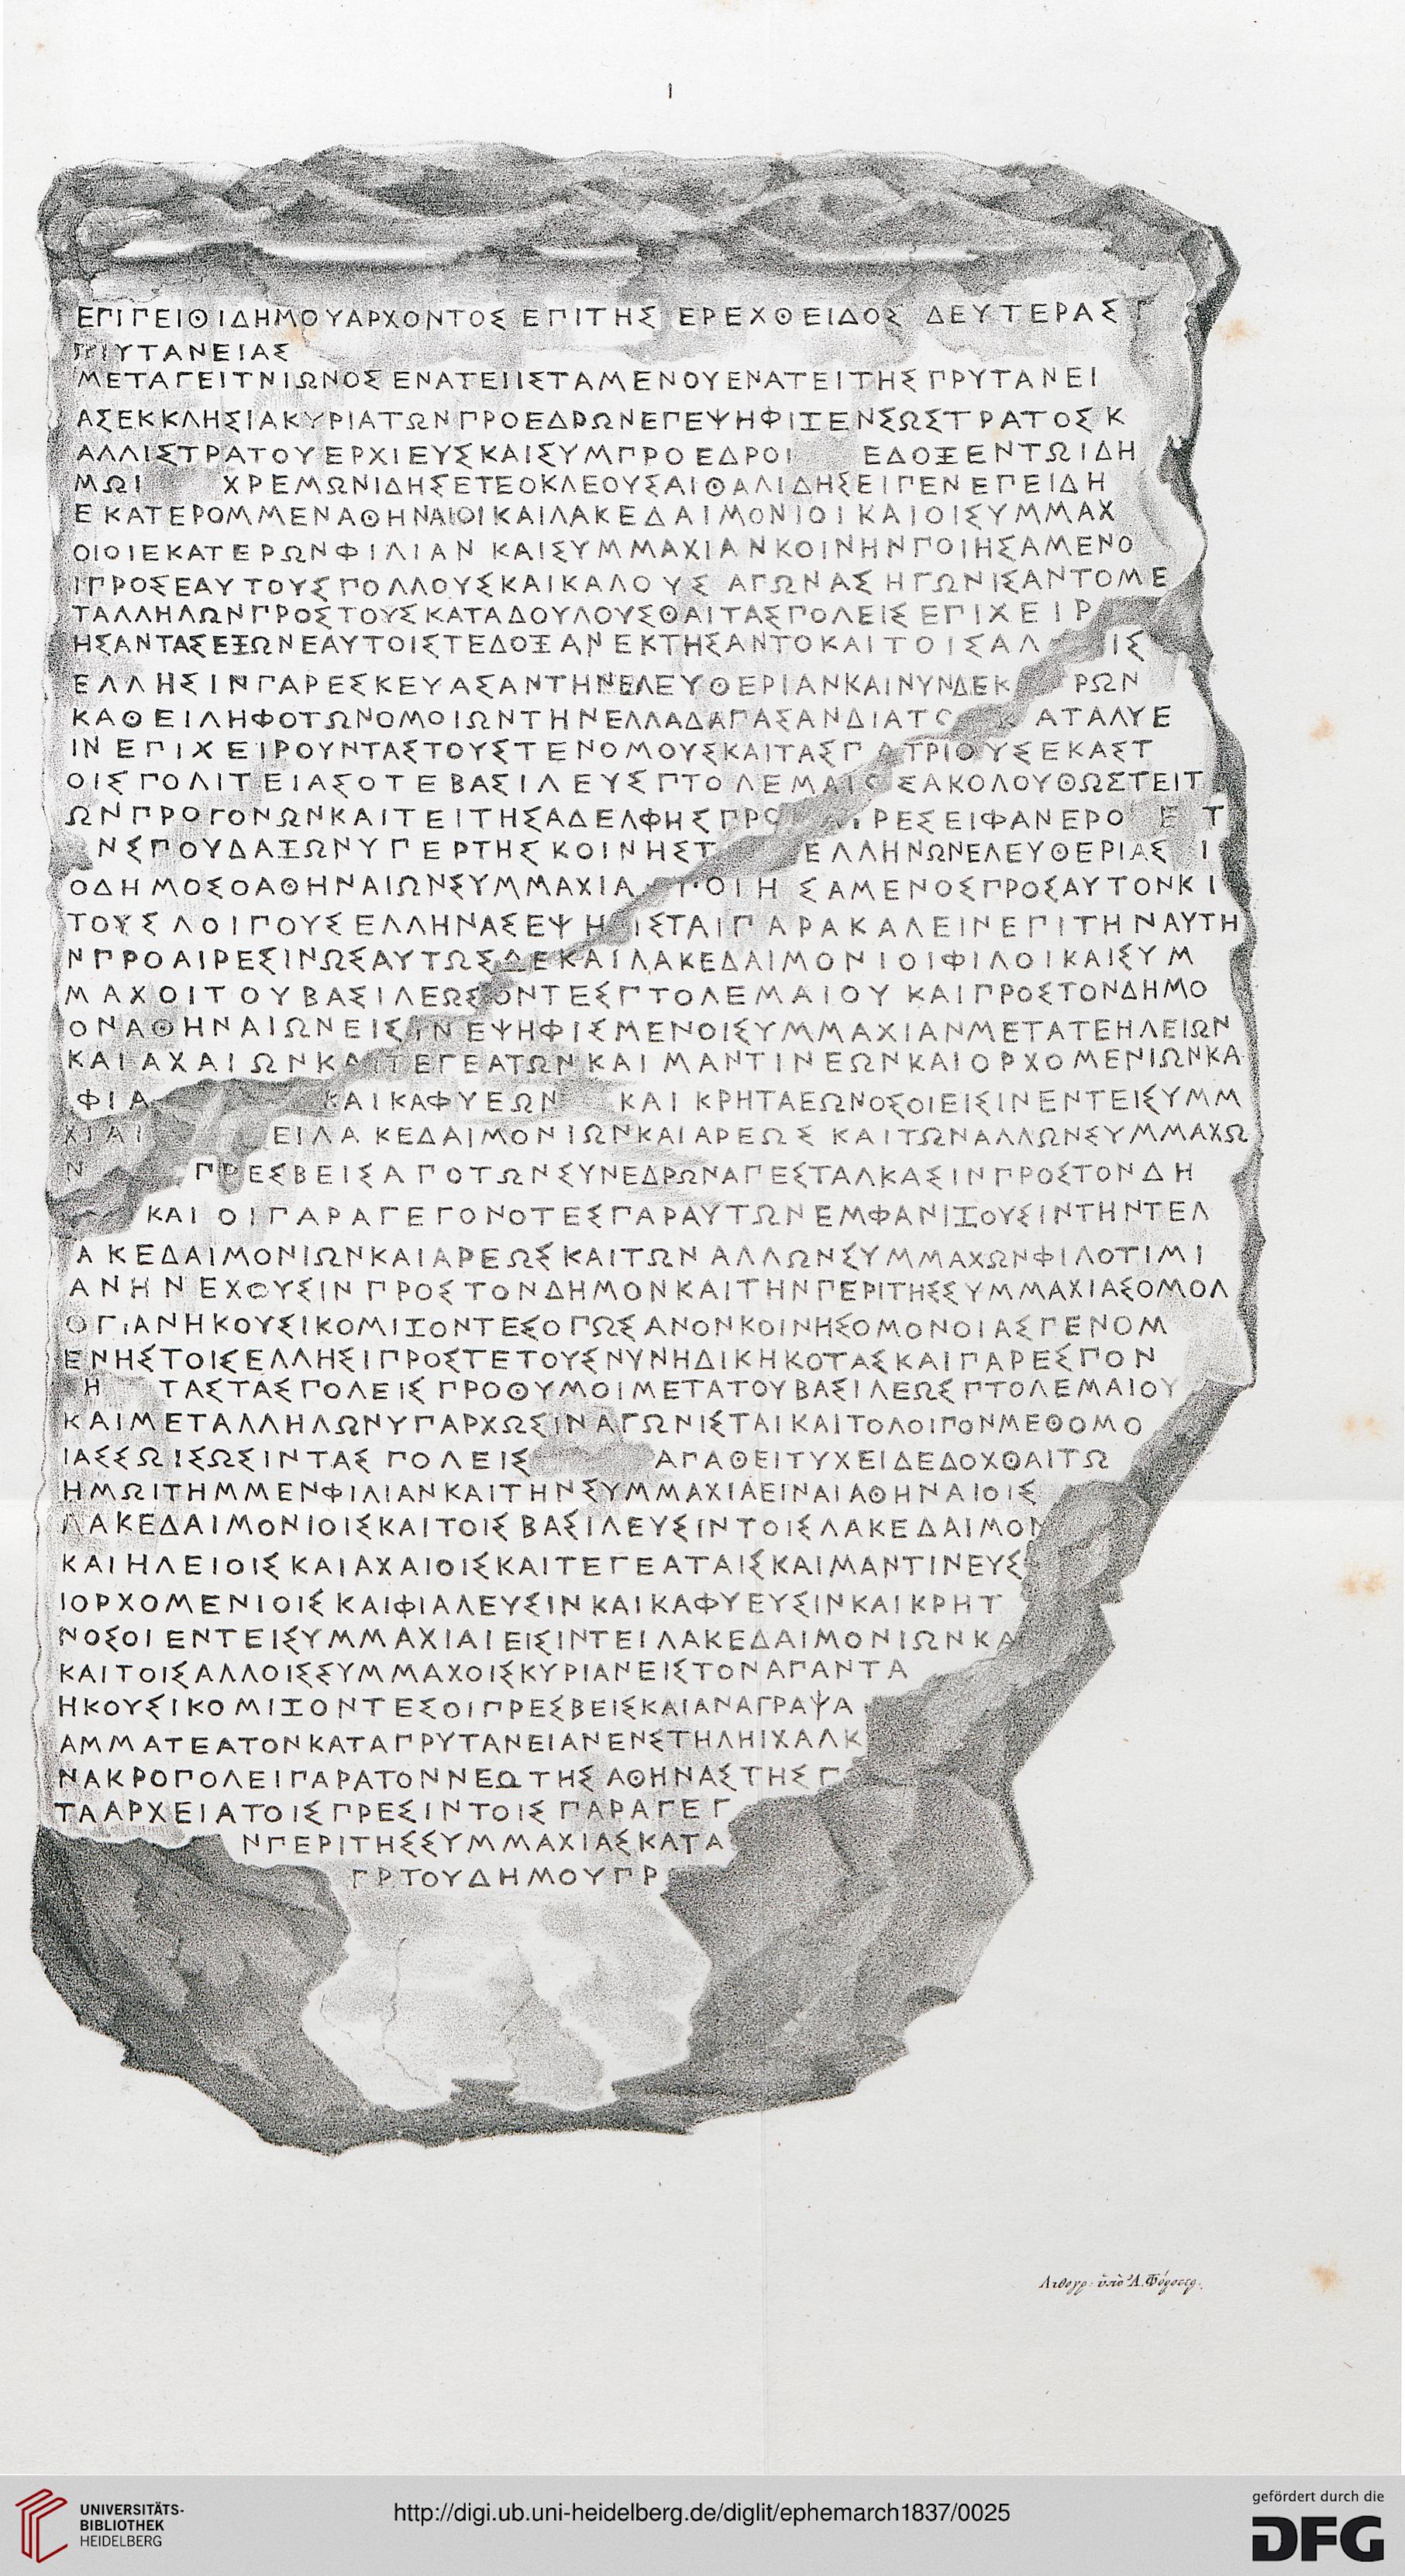 Ι
ΕΠΙΠΕΙΘΙΔΗΜΟΥΑΡΧΟΝΤΟΣ ΕΠΙΤΗΣ ΕΡΕΧΘΕΙΔΟΣ ΔΕΥΤΕΡΑΣ
ΥΤΑΝΕΙΑΣ
ΜΕΤΑΓΕΙΤΝΙΩΝΟΣ ΕΝΑΤΕΙΙΣΤΑΜΕΝΟΥΕΝΑΤΕΙΤΗΣΠΡΥΤΑΝΕΙ
ΑΣΕΚΚΛΗΣΙΑΚΥΡΙΑΤΩΝΠΡΟΕΔΡΩΝΕΠΕΨΗΦΙΙΕΝΣΩΣΤΡΑΤΟΣ Κ
ΑΛΛΙΣΤΡΑΤΟΥΕΡΧΙΕΥΣΚΑΙΣΥΜΠΡΟΕΔΡΟΙ ΕΔΟΞΕΝΤΩΙΔΗ
ΜΩΙ ΧΡΕΜΩΝΙΔΗΣΕΤΕΟΚΛΕΟΥΣΑΙΘΑΛΙΔΗΣΕΙΠΕΝΕΠΕΙΔΗ
ΕΚΑΤΕΡΟΜΜΕΝΑΘΗΝΑΙΟΙΚΑΙΛΑΚΕΔΑΙΜΟΝΙΟΙΚΑΙΟΙΣΥΜΜΑΧ
ΟΙΟΙΕΚΑΤΕΡΩΝΦΙΛΙΑΝ ΚΑΙΣΥΜΜΑΧΙΑΝΚΟΙΝΗΝΠΟΙΗΣΑΜΕΝΟ
ΙΠΡΟΣΕΑΥΤΟΥΣΠΟΛΛΟΥΣΚΑΙΚΑΛΟΥΣ ΑΓΩΝΑΣ ΗΓΩΝΙΣΑΝΤΟΜΕ
ΤΑΛΛΗΛΩΝΠΡΟΣΤΟΥΣΚΑΤΑΔΟΥΛΟΥΣΘΑΙΤΑΣΠΟΛΕΙΣ ΕΠΙΧΕΙΡ
ΗΣΑΝΤΑΣΕΞΩΝΕΑΥΤΟΙΣΤΕΔΟΞΑΝΕΚΤΗΣΑΝΤΟΚΑΙΤΟΙΣΑΛ ΙΣ
ΕΛΛΗΣΙΝΠΑΡΕΣΚΕΥΑΣΑΝΤΗΝΕΛΕΥΘΕΡΙΑΝΚΑΙΝΥΝΔΕΚ ΡΩΝ
ΚΑΘΕΙΛΗΦΟΤΩΝΟΜΟΙΩΝΤΗΝΕΛΛΑΔΑΠΑΣΑΝΔΙΑΤΟ Κ ΑΤΑΛΥΕ
ΙΝ ΕΠΙΧΕΙΡΟΥΝΤΑΣΤΟΥΣΤΕΝΟΜΟΥΣΚΑΙΤΑΣΠΑΤΡΙΟΥΣΕΚΑΣΤ
ΟΙΣ ΠΟΛΙΤΕΙΑΣΟΤΕΒΑΣΙΛΕΥΣΠΤΟΛΕΜΑΙΟΣΑΚΟΛΟΥΘΩΣΤΕΙΤ
ΩΝΠΡΟΓΟΝΩΝΚΑΙΤΕΙΤΗΣΑΔΕΛΦΗΣΠΡΟ ΡΕΣΕΙΦΑΝΕΡΟ Ε Τ
ΝΣΠΟΥΔΑΞΩΝΥΠΕΡΤΗΣ ΚΟΙΝΗΣΤ ΕΛΛΗΝΩΝΕΛΕΥΘΕΡΙΑΣ Ι
ΟΔΗΜΟΣΟΑΘΗΝΑΙΩΝΣΥΜΜΑΧΙΑ ΠΟΙΗ ΣΑΜΕΝΟΣΠΡΟΣΑΥΤΟΝΚΙ
ΤΟΥΣ ΛΟΙΠΟΥΣ ΕΛΛΗΝΑΣΕΨΗ ΙΣΤΑΙΠΑΡΑΚΑΛΕΙΝΕΠΙΤΗΝΑΥΤΗ
ΝΠΡΟΑΙΡΕΣΙΝΩΣΑΥΤΩΣΔΕΚΑΙΛΑΚΕΔΑΙΜΟΝΙΟΙΦΙΛΟΙΚΑΙΣΥΜ
ΜΑΧΟΙΤΟΥΒΑΣΙΛΕΩΣΟΝΤΕΣΠΤΟΛΕΜΑΙΟΥ ΚΑΙΠΡΟΣΤΟΝΔΗΜΟ
ΟΝΑΘΗΝΑΙΩΝΕΙΣΙΝΕΨΗΦΙΣΜΕΝΟΙΣΥΜΜΑΧΙΑΝΜΕΤΑΤΕΗΛΕΙΩΝ
ΚΑΙΑΧΑΙΩΝΚΑΙΤΕΓΕΑΤΩΝΚΑΙΜΑΝΤΙΝΕΩΝΚΑΙΟΡΧΟΜΕΝΙΩΝΚΑ
ΦΙΑ ΚΑΙΚΑΦΥΕΩΝ ΚΑΙΚΡΗΤΑΕΩΝΟΣΟΙΕΙΣΙΝΕΝΤΕΙΣΥΜΜ
ΧΙΑΙ ΕΙΛΑΚΕΔΑΙΜΟΝΙΩΝΚΑΙΑΡΕΩΣ ΚΑΙΤΩΝΑΛΛΩΝΣΥΜΜΑΧΩ
Ν ΠΡΕΣΒΕΙΣΑΠΟΤΩΝΣΥΝΕΔΡΩΝΑΠΕΣΤΑΛΚΑΣΙΝΠΡΟΣΤΟΝΔΗ
ΚΑΙ ΟΙΠΑΡΑΓΕΓΟΝΟΤΕΣΠΑΡΑΥΤΩΝΕΜΦΑΝΙΙΟΥΣΙΝΤΗΝΤΕΛ
ΑΚΕΔΑΙΜΟΝΙΩΝΚΑΙΑΡΕΩΣΚΑΙΤΩΝΑΛΛΩΝΣΥΜΜΑΧΩΝΦΙΛΟΤΙΜΙ
ΑΝΗΝΕΧΟΥΣΙΝΠΡΟΣΤΟΝΔΗΜΟΝΚΑΙΤΗΝΠΕΡΙΤΗΣΣΥΜΜΑΧΙΑΣΟΜΟΛ
ΟΓΙΑΝΗΚΟΥΣΙΚΟΜΙΙΟΝΤΕΣΟΠΩΣΑΝΟΝΚΟΙΝΗΣΟΜΟΝΟΙΑΣΓΕΝΟΜ
ΕΝΗΣΤΟΙΣΕΛΛΗΣΙΠΡΟΣΤΕΤΟΥΣΝΥΝΗΔΙΚΗΚΟΤΑΣΚΑΙΠΑΡΕΣΠΟΝ
Η ΤΑΣΤΑΣΠΟΛΕΙΣΠΡΟΘΥΜΟΙΜΕΤΑΤΟΥΒΑΣΙΛΕΩΣΠΤΟΛΕΜΑΙΟΥ
ΚΑΙΜΕΤΑΛΛΗΛΩΝΥΠΑΡΧΩΣΙΝΑΓΩΝΙΣΤΑΙΚΑΙΤΟΛΟΙΠΟΝΜΕΘΟΜΟ
ΙΑΣΣΩΙΣΩΣΙΝΤΑΣ ΠΟΛΕΙΣ ΑΓΑΘΕΙΤΥΧΕΙΔΕΔΟΧΘΑΙΤΩ
ΗΜΩΙΤΗΜΜΕΝΦΙΛΙΑΝΚΑΙΤΗΝΣΥΜΜΑΧΙΑΕΙΝΑΙΑΘΗΝΑΙΟΙΣ
ΛΑΚΕΔΑΙΜΟΝΙΟΙΣΚΑΙΤΟΙΣΒΑΣΙΛΕΥΣΙΝΤΟΙΣΛΑΚΕΔΑΙΜΟΝ
ΚΑΙΗΛΕΙΟΙΣΚΑΙΑΧΑΙΟΙΣΚΑΙΤΕΓΕΑΤΑΙΣΚΑΙΜΑΝΤΙΝΕΥΣ
ΙΟΡΧΟΜΕΝΙΟΙΣ ΚΑΙΦΙΑΛΕΥΣΙΝΚΑΙΚΑΦΥΕΥΣΙΝΚΑΙΚΡΗΤ
ΝΟΣΟΙΕΝΤΕΙΣΥΜΜΑΧΙΑΙΕΙΣΙΝΤΕΙΛΑΚΕΔΑΙΜΟΝΙΩΝΚΑ
ΚΑΙΤΟΙΣΑΛΛΟΙΣΣΥΜΜΑΧΟΙΣΚΥΡΙΑΝΕΙΣΤΟΝΑΠΑΝΤΑ
ΗΚΟΥΣΙΚΟΜΙΙΟΝΤΕΣΟΙΠΡΕΣΒΕΙΣΚΑΙΑΝΑΓΡΑΨΑ
ΑΜΜΑΤΕΑΤΟΝΚΑΤΑΠΡΥΤΑΝΕΙΑΝΕΝΣΤΗΛΗΙΧΑΛΚ
ΝΑΚΡΟΠΟΛΕΙΠΑΡΑΤΟΝΝΕΩΤΗΣΑΘΗΝΑΣΤΗΣΠ
ΤΑΑΡΧΕΙΑΤΟΙΣΠΡΕΣΙΝΤΟΙΣ ΠΑΡΑΓΕΓ
ΝΠΕΡΙΤΗΣΣΥΜΜΑΧΙΑΣΚΑΤΑ
ΓΡΤΟΥΔΗΜΟΥΠΡ
Λιθογρ. ὑπὸ Ἀ. Φόρστερ.
UNIVERSITÄTS-
BIBLIOTHEK
HEIDELBERG
http://digi.ub.uni-heidelberg.de/diglit/ephemarch1837/0025
gefördert durch die
DFG